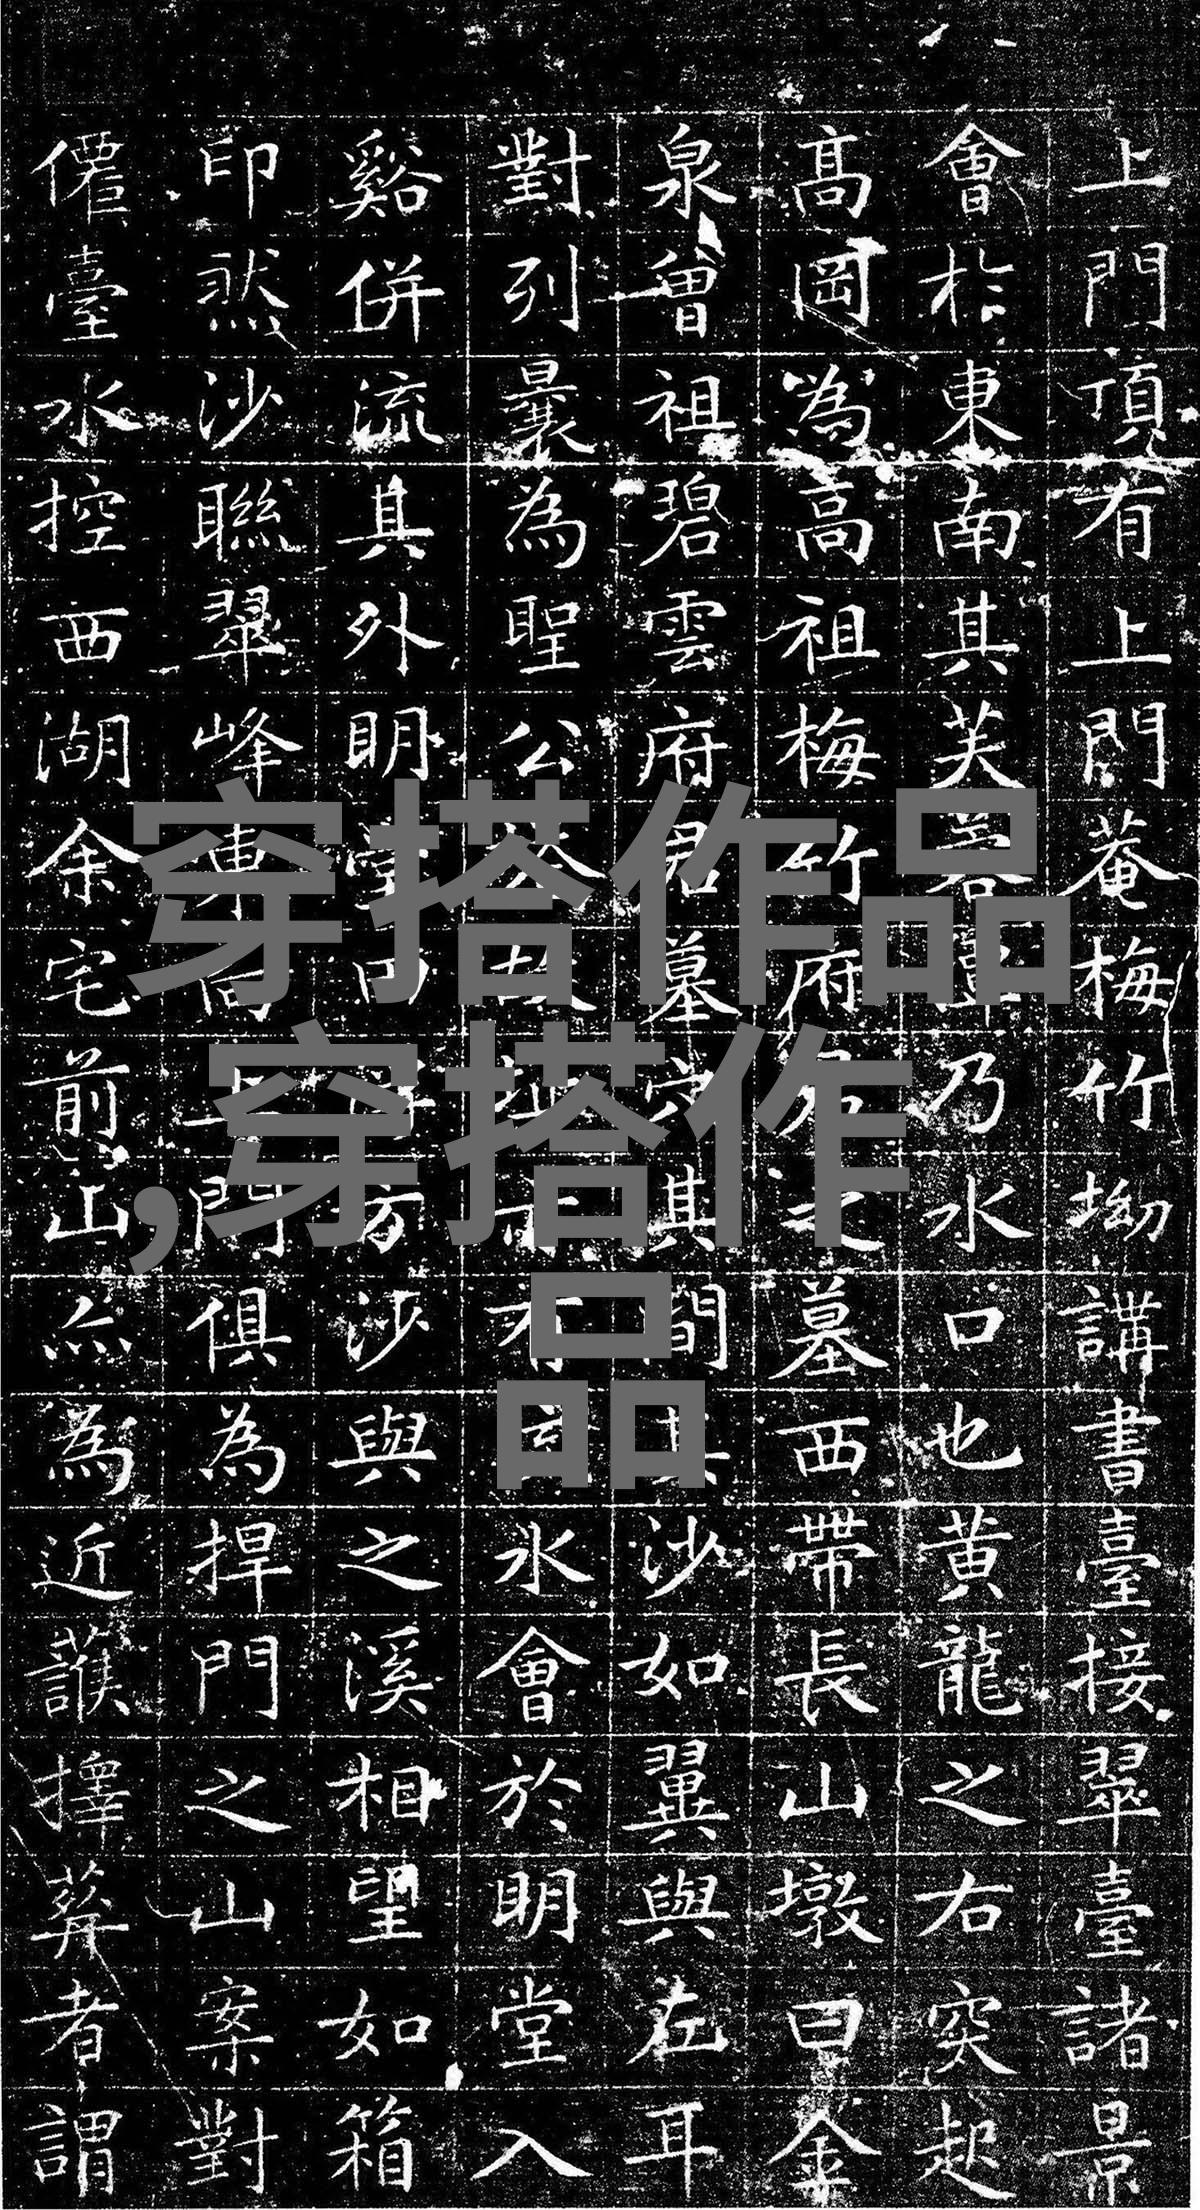 上門頂有上門菴梅竹坳講書臺接翠臺諸景
會扵東南其芙蓉乃水口也黃龍之右突起
高岡為高祖梅竹府君之墓西帶長山墩曰金
泉曾祖碧雲府君墓穴其間其沙如翼與左耳
對列曩為聖公故址有水會於明堂入
谿併流其外明堂方沙與之溪相望如箱
印然沙聯翠峰東門俱為捍門之山案對
僊臺水控西湖余宅前山為近擇葬者謂
穿搭作品
,穿搭作
品